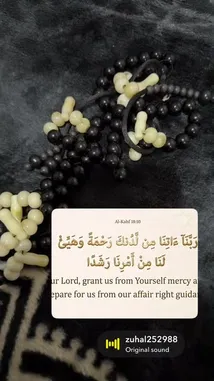 Al-Kahf 18:10
رَبَّنَآ ءَاتِنَا مِن لَّدُنكَ رَحْمَةً وَهَيِّئْ
لَنَا مِنْ أَمْرِنَا رَشَدًا
ur Lord, grant us from Yourself mercy a
epare for us from our affair right guida
zuhal252988
Original sound